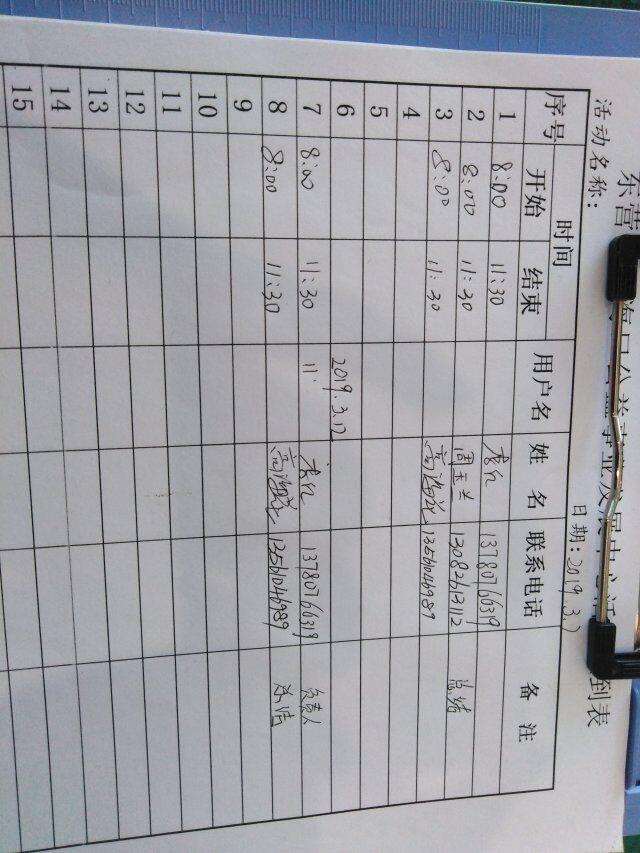 东营 海口公益事业发展中心活 到表
活动名称： 日期：2019.3.2
序号 时间 用户名 姓名 联系电话 备注
开始 结束
1 8:00 11:30 13780766319
2 8:00 11:30 周玉兰 13082613112 总结
3 8:00 11:30 高海花 13561046989
4
5
6 2019.3.12
7 8:00 11:30 11: 13780766319 负责人
8 8:00 11:30 高海花 13561046989
9
10
11
12
13
14
15